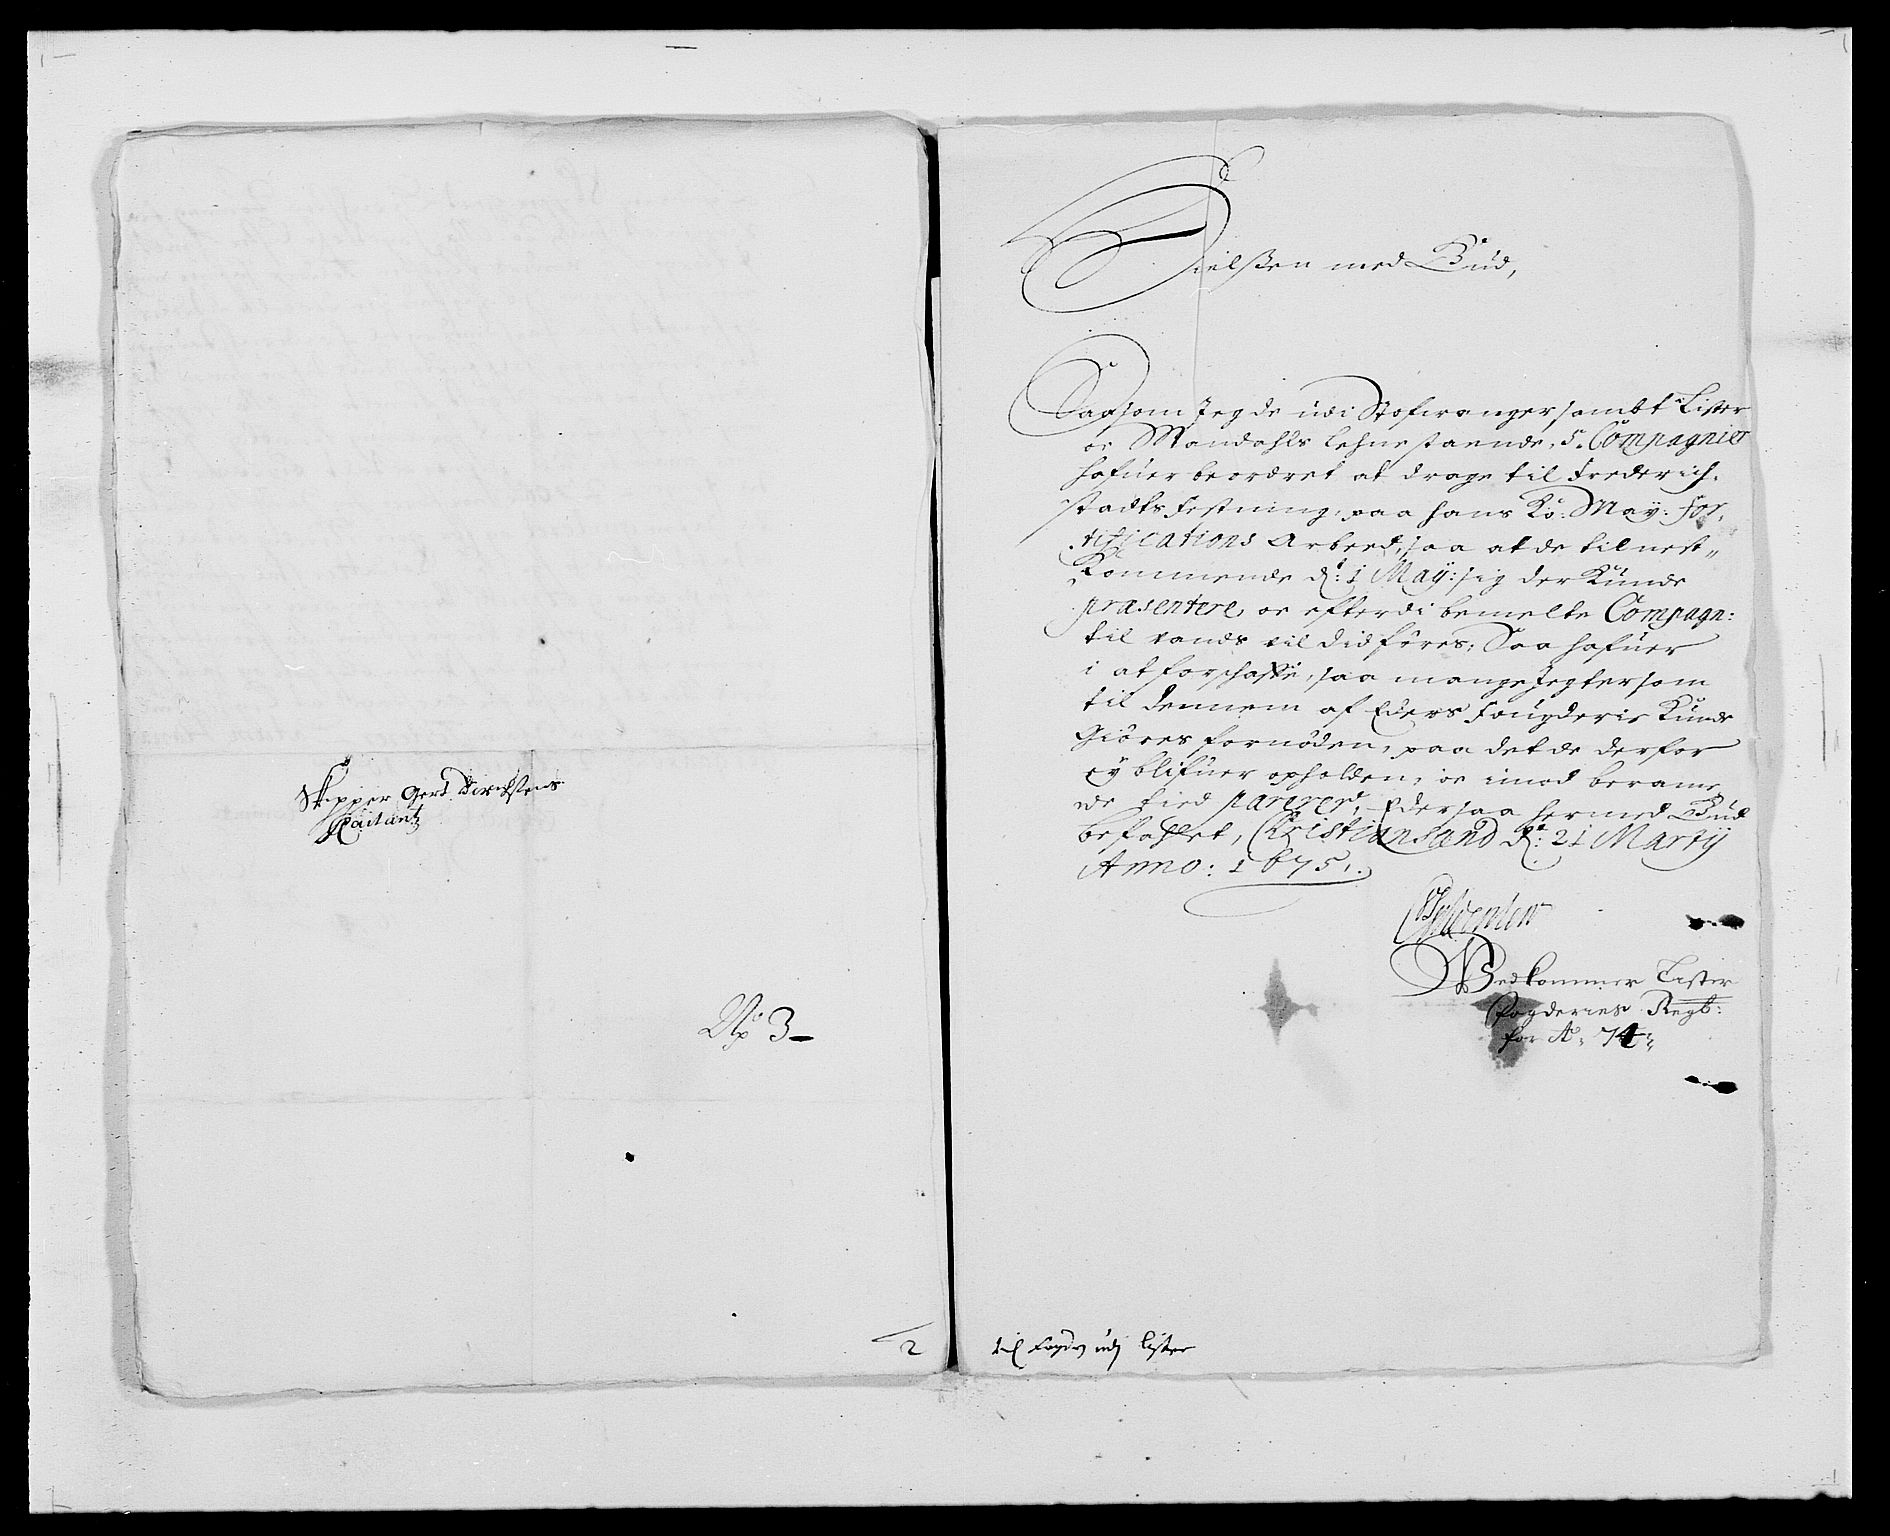 Skipper Gert Dirchsens
Qvitantz
No 3
2
Hielsen med Gud,
Saasom Jeg de udi Stafwanger sambt Lister
oc Mandahls Lehne staaende 5. Compagnier
hafuer beordret at drage til Frederich-
stadts Festning, paa hans Ko: May: For-
tifications Arbeed, saa at de til nest-
Kommende d: 1 May: sig der Kunde
præsentere, oc efterdi bemelte Compagn:
til vands vil did føres, Saa hafuer
i at forschaffe, saa mange Jegter som
til dennem af Eders Fougderie Kunde
Giøres fornøden, paa det de derfor
ey blifuer opholden, oc imod beram-
de tied parerer, Eder saa hermed Gud
befahlet, Christiansand d: 21 Martij
Anno: 1675.
Gyldenlew
Vedkommer Lister
fogderies Regb:
for Ao 74
til Fogden udj Lister